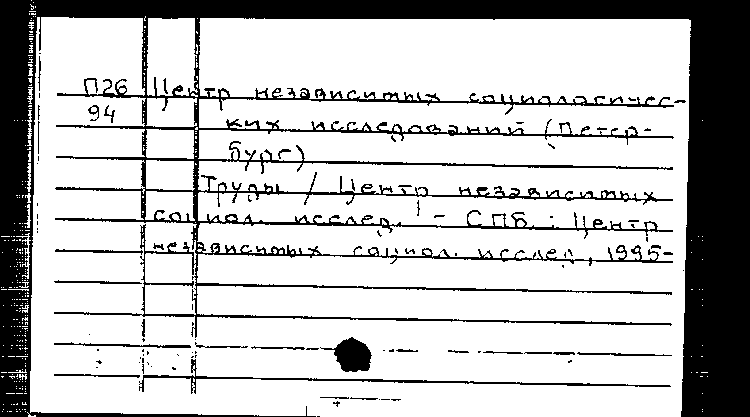 П26 Центр независимых социологичес-
94 ких исследований (Петер-
бург)
Труды / Центр независимых
социол. исслед. - СПб. : Центр
независимых социол. исслед, 1995-